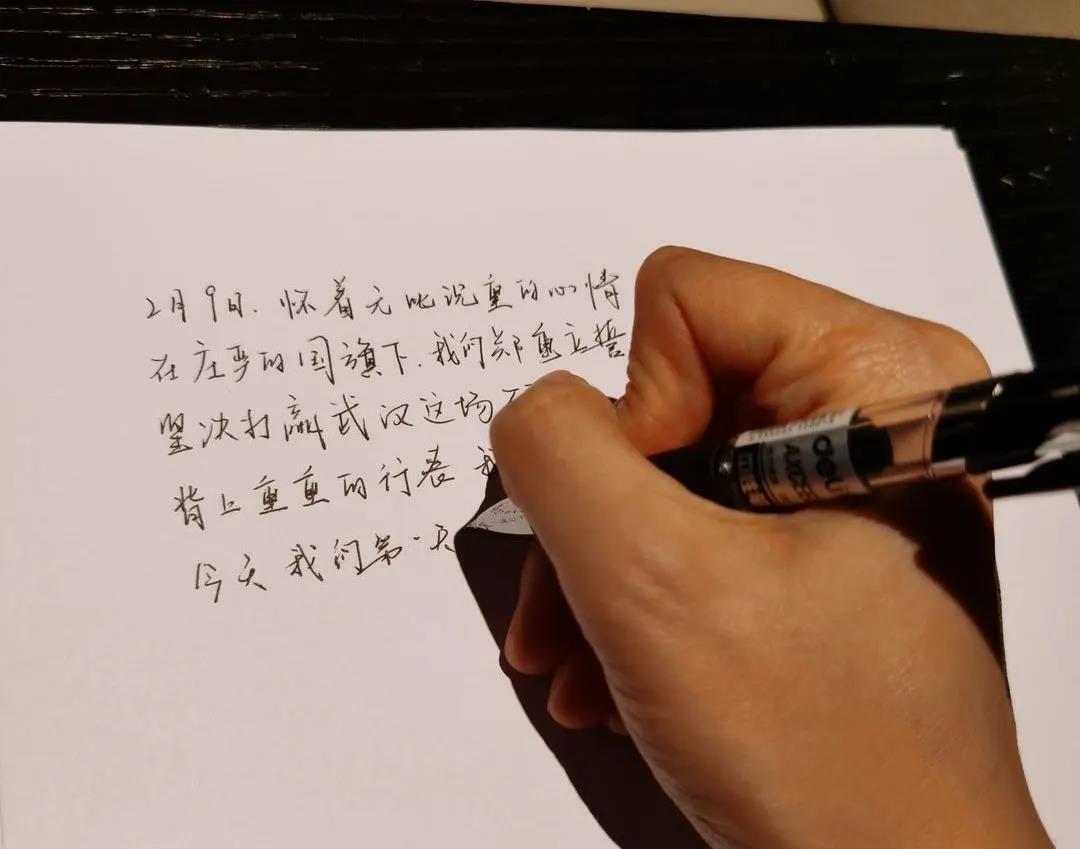 2月9日.怀着无比沉重的心情
在庄严的国旗下.我们郑重立誓
坚决打赢武汉这场
背上重重的行装
今天 我们第一天
deli